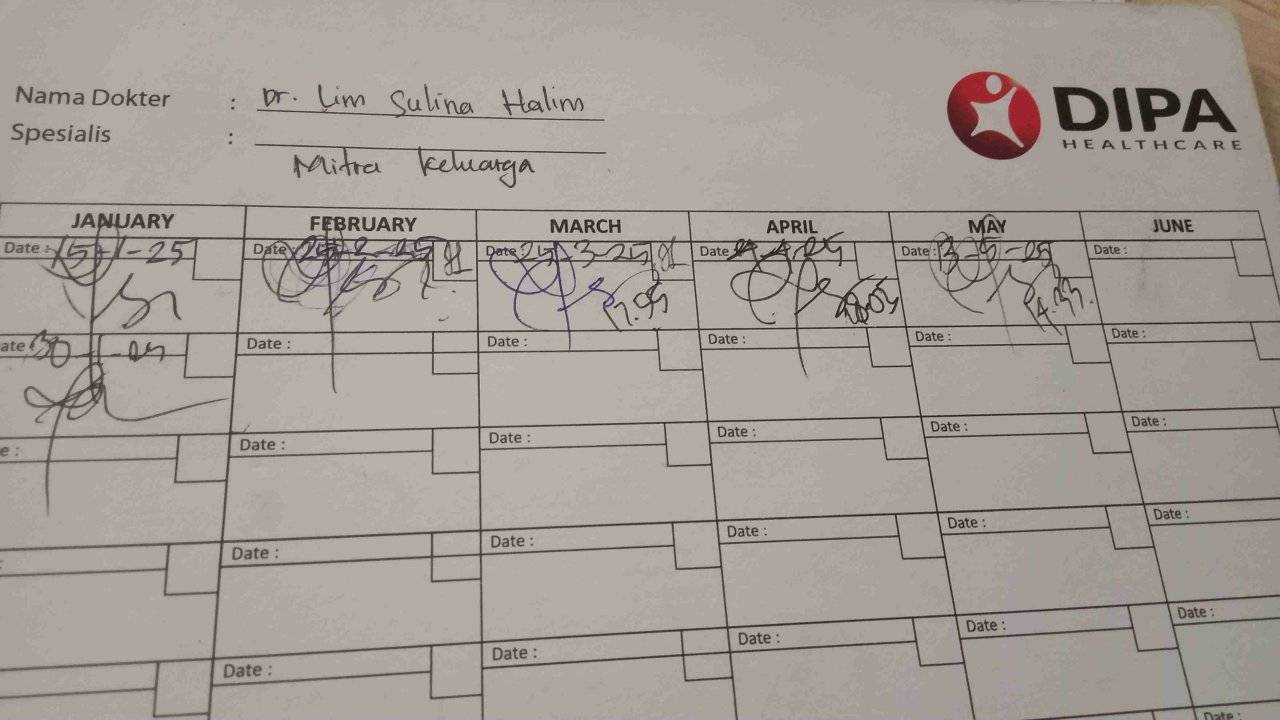 Nama Dokter : Dr. Lim Sulina Halim
Spesialis :
Mitra Keluarga
DIPA
HEALTHCARE
JANUARY FEBRUARY MARCH APRIL MAY JUNE
Date : 15-1-25 Date 25-2-25 Date: 25-3-25 Date Date : 13-5-25 Date :
17.55 14.33
ate : 30-1-25 Date : Date : Date : Date : Date :
e : Date : Date : Date : Date : Date :
: Date : Date : Date : Date : Date :
Date : Date : Date : Date : Date :
Date :